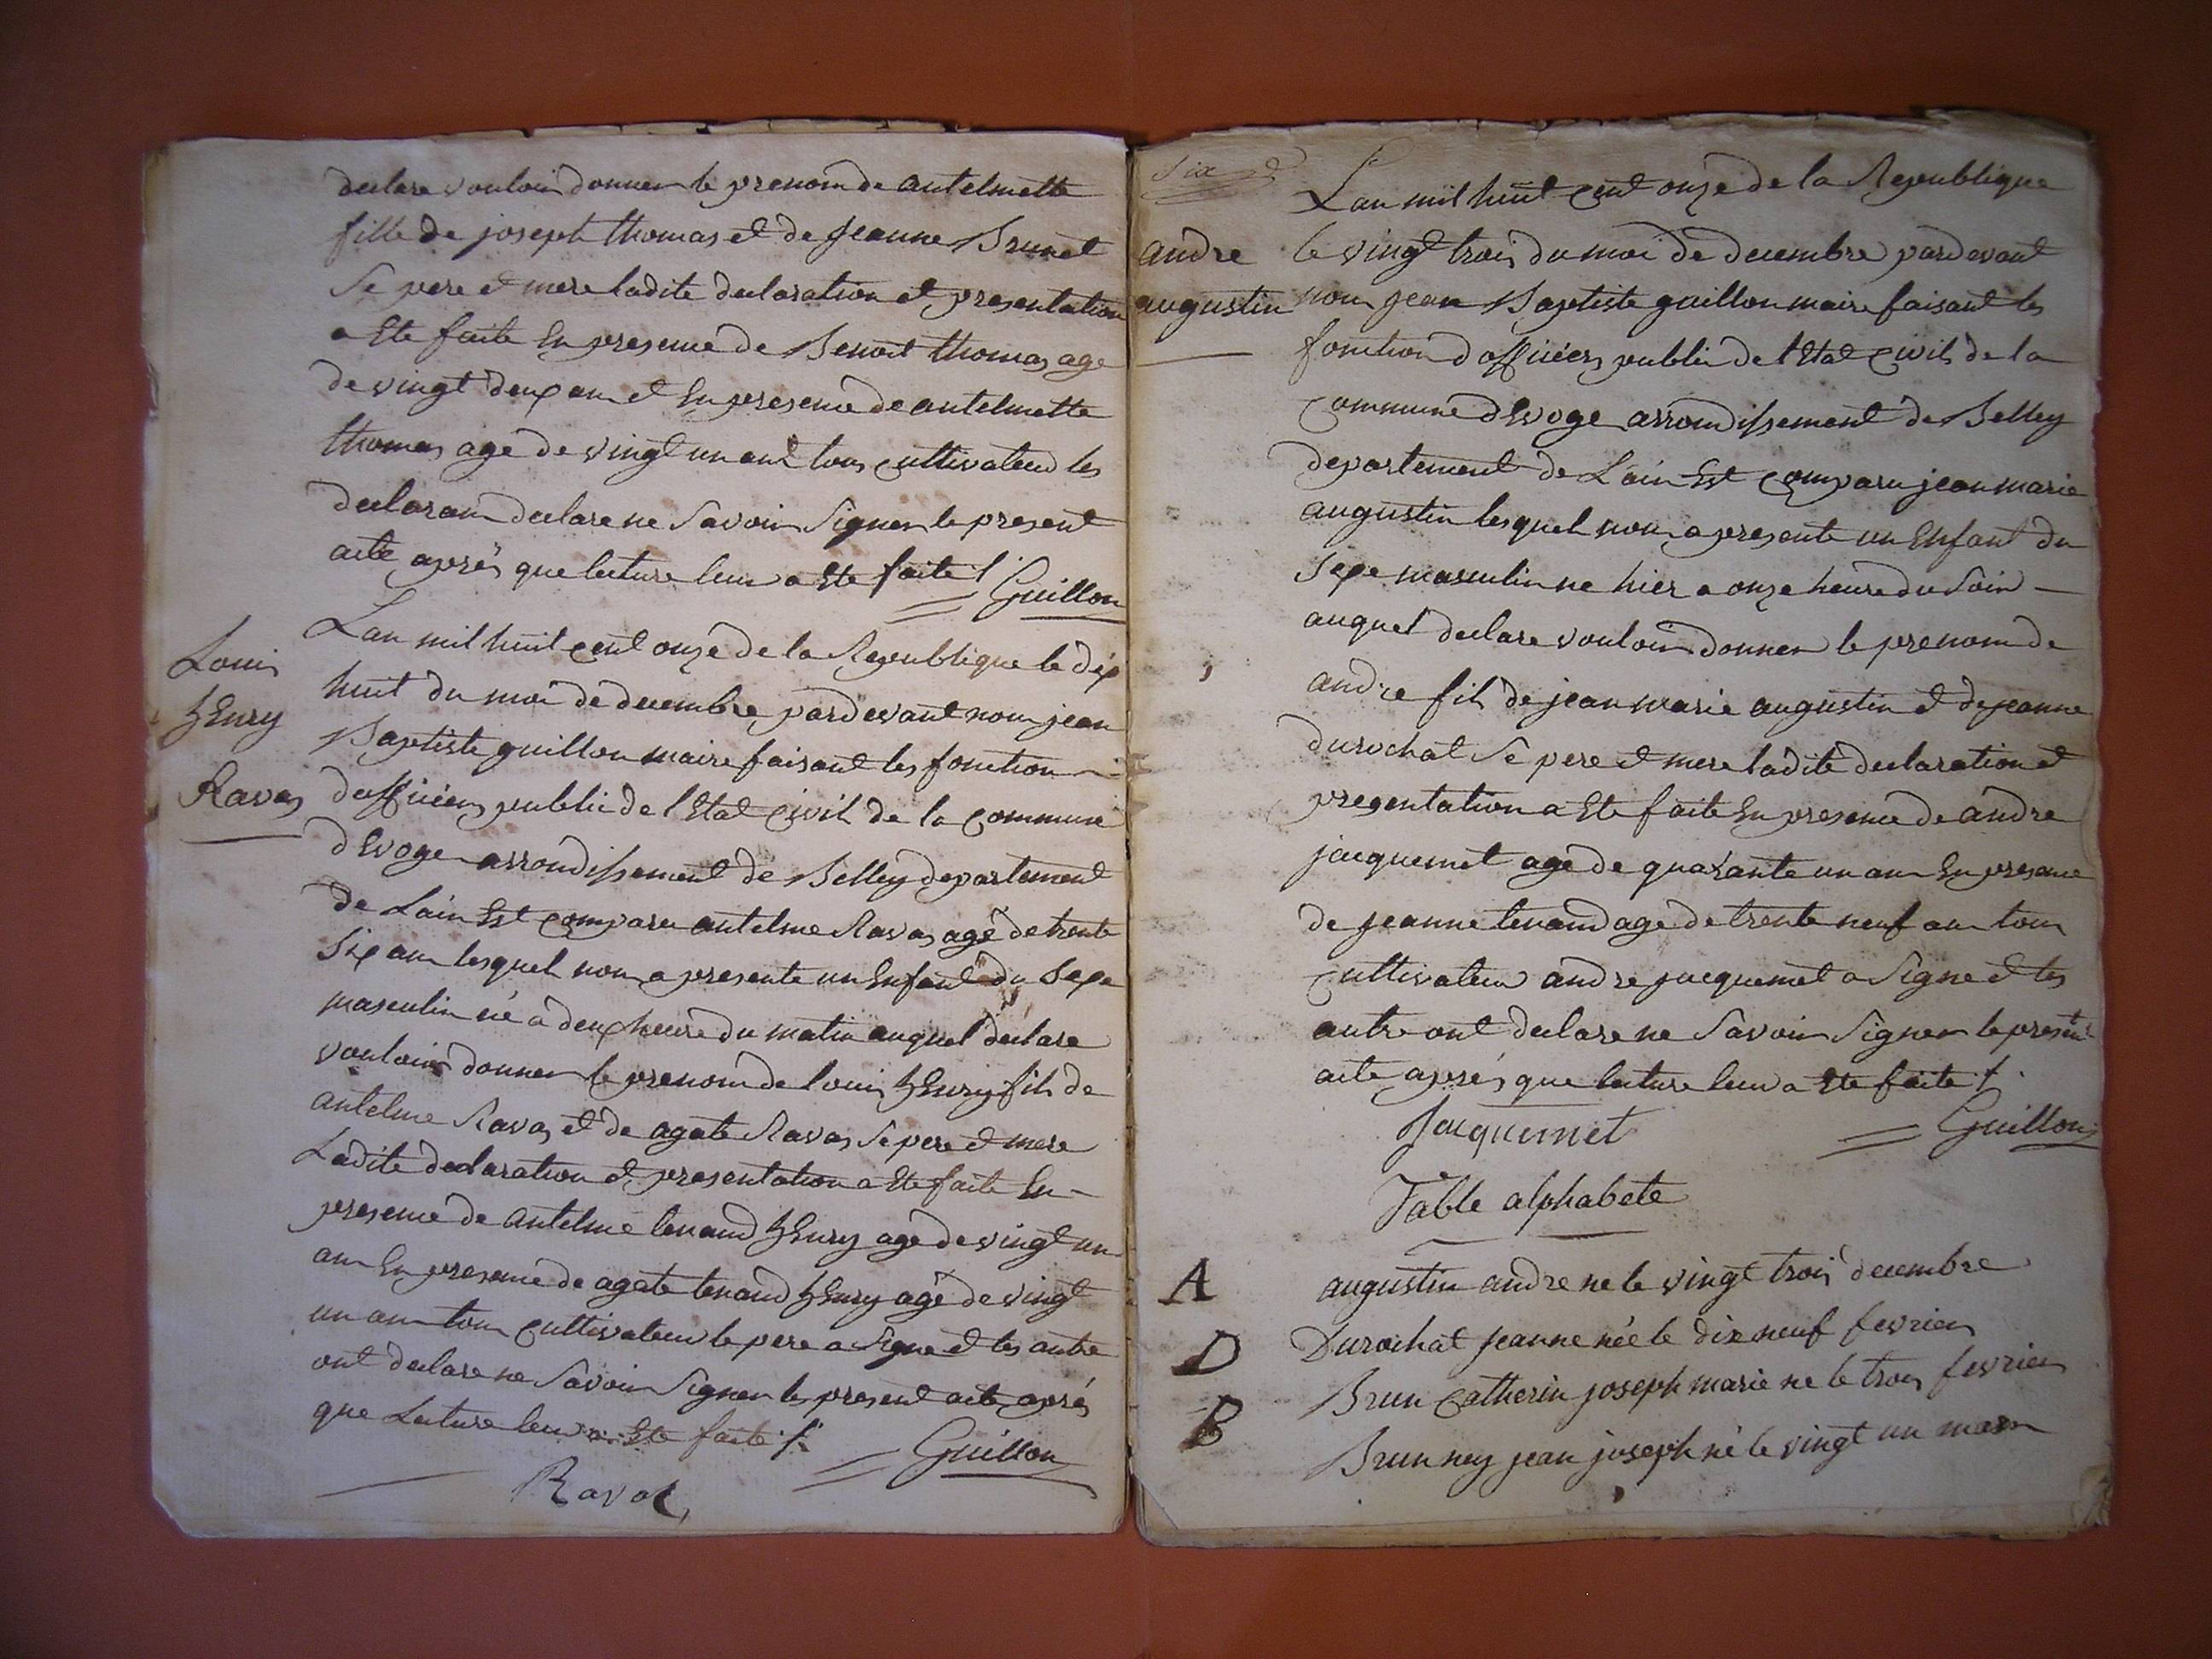 declare vouloir donner le prenom de antelmette
fille de joseph thomas et de jeanne Brunet
Se pere et mere ladite declaration et presentation
a Ete faite En presence de Benoit thomas age
de vingt deux an et En presence de antelmette
thomas age de vingt un ant tous cultivateur les
declaran declare ne Savoir Signer le present
acte aprés que lecture leur a Ete faite /.
Guillon
Louis
hEnry
Ravas
Lan mil huit cent onze de la Republique le dix
huit du moi de decembre pardevant nous jean
Baptiste guillon maire faisant les fonction
dofficier public de l'Etat civil de la commune
dEvoge arrondissement de Belley departement
de Lain Est comparu antelme Ravas agé de trente
Six an lesquel nous a presente un Enfant du Sexe
masculin né a deux heure du matin auquel declare
vouloir donner le prenom de louis hEnry fils de
antelme Ravas et de agate Ravas Se pere et mere
Ladite declaration et presentation a Ete faite En
presence de antelme tenand hEnry age de vingt un
an En presence de agate tenand hEnry agé de vingt
un an tous cultivateur le pere a Signe et les autre
ont declare ne Savoir Signer le present acte aprés
que Lecture leur a Ete faite /.
Guillon
Ravas
Six
andre
augustin
Lan mil huit cent onze de la Republique
le vingt trois du moi de decembre pardevant
nous jean Baptiste guillon maire faisant les
fonction d officier public de l Etat civil de la
commune dEvoge arrondissement de Belley
departement de Lain Est comparu jean marie
augustin lesquel nous a presente un Enfant du
Sexe masculin ne hier a onze heure du Soir
auquel declare vouloir donner le prenom de
andre fils de jean marie augustin et de jeanne
durochat Se pere et mere ladite declaration et
presentation a Ete faite En presence de andre
jacquemet agé de quarante un an En presence
de jeanne tenand age de trente neuf an tous
cultivateur andre jacquemet a Signe et les
autre ont declare ne Savoir Signer le present
acte aprés que lecture leur a Ete faite /.
Jacquemet
Guillon
Table alphabete
A augustin andre ne le vingt trois decembre
D Durochat jeanne née le dix neuf fevrier
Brun catherin joseph marie ne le trois fevrier
B
Brunney jean joseph né le vingt un mars